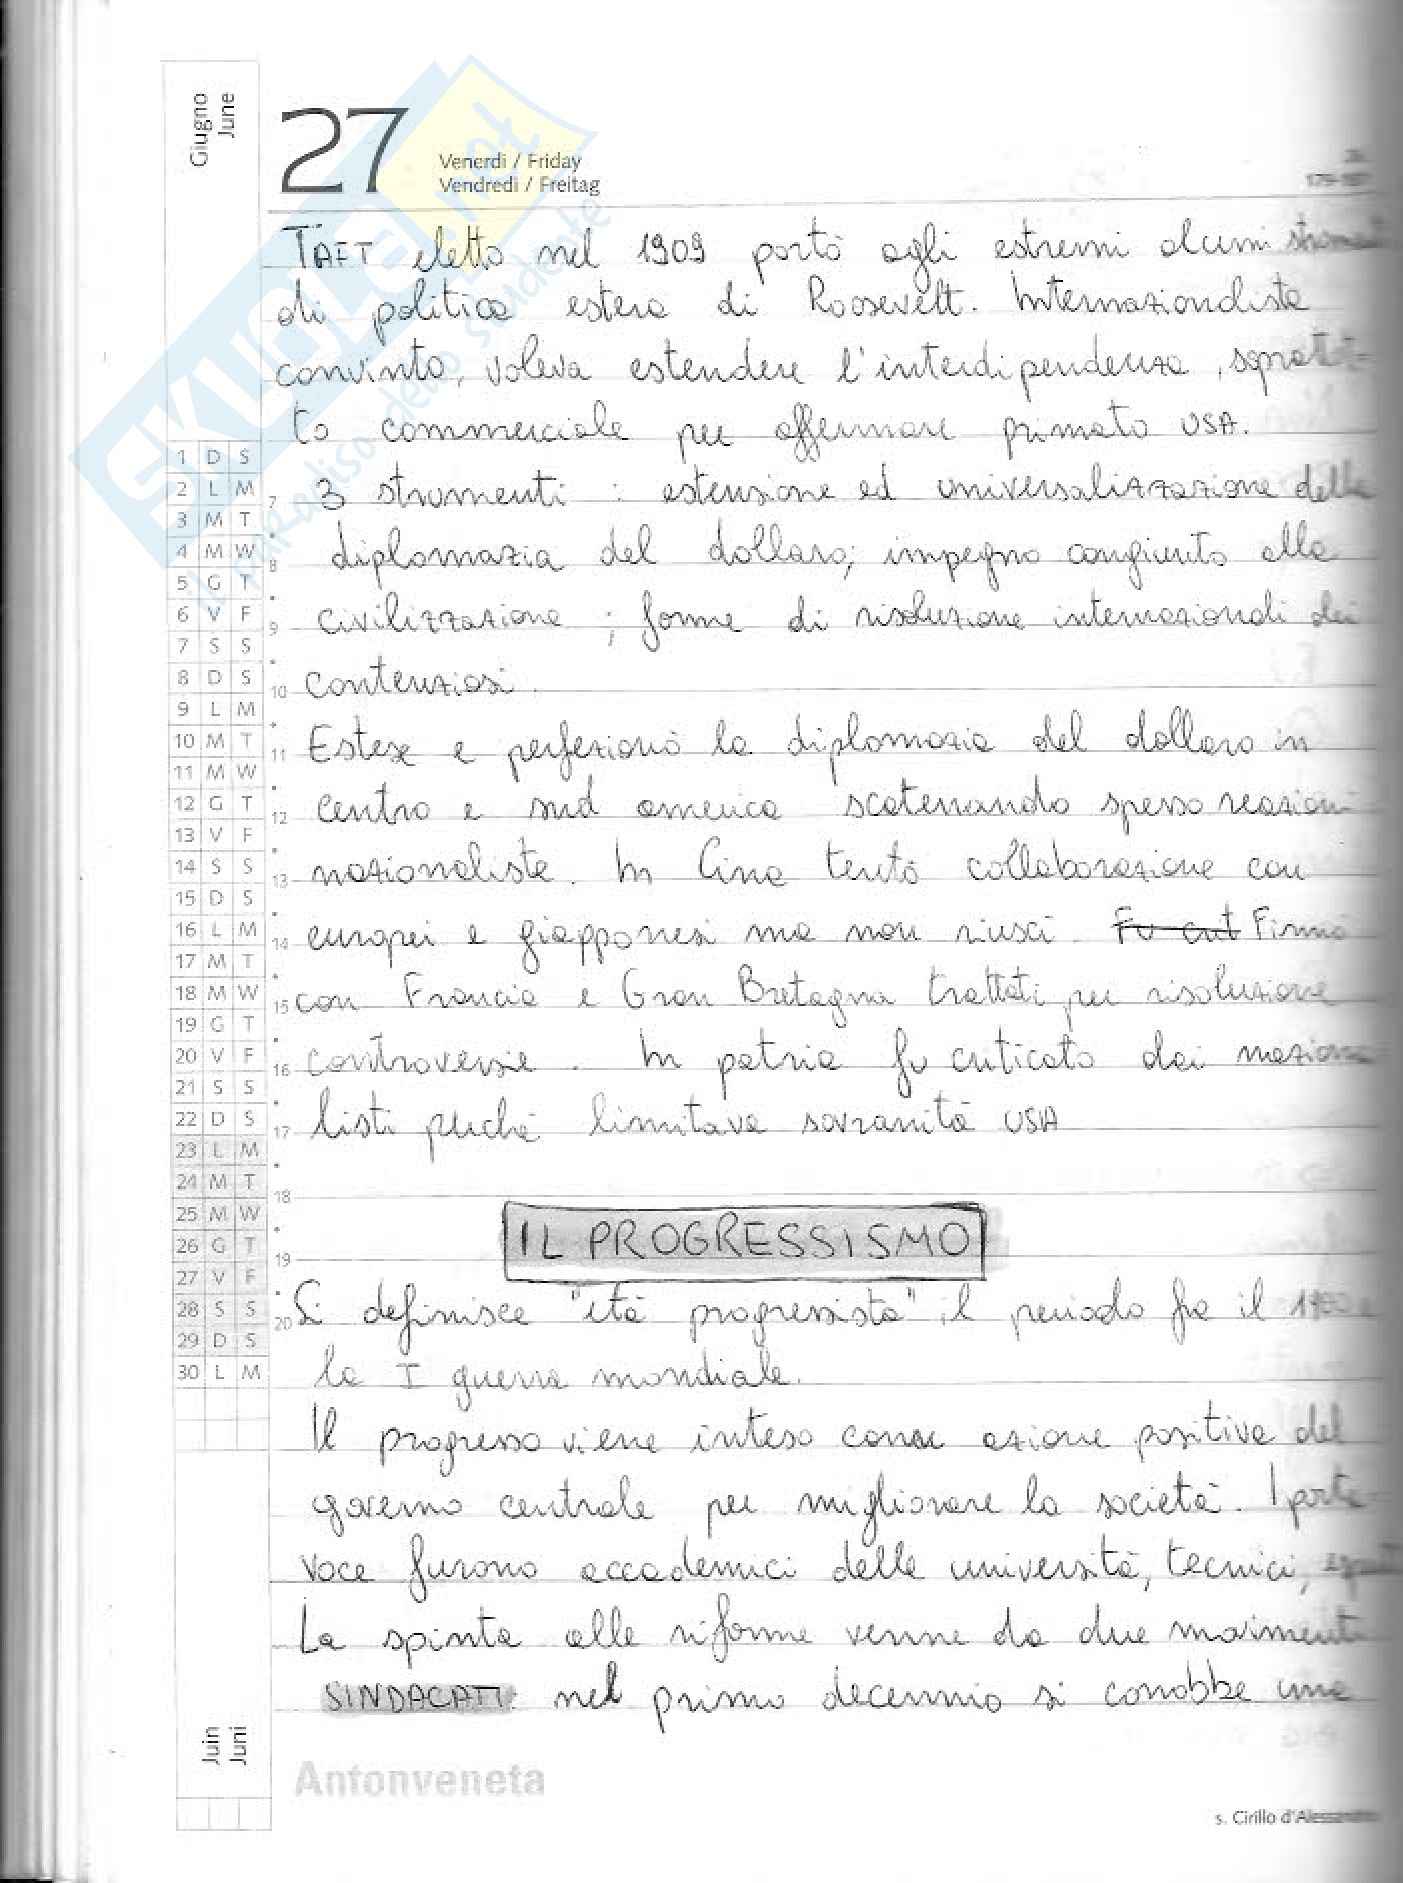 Giugno
June
27
Venerdi / Friday
Vendredi / Freitag
26
179-187
SKUOLA.net
il paradiso dello studente
TAFT eletto nel 1909 portò agli estremi alcuni strumenti
di politica estera di Roosevelt. Internazionalista
convinto, voleva estendere l'interdipendenza, soprattut-
to commerciale per affermare primato USA.
3 strumenti : estensione ed universalizzazione della
diplomazia del dollaro; impegno congiunto alla
civilizzazione ; forme di risoluzione internazionali dei
contenziosi.
Estese e perfezionò la diplomazia del dollaro in
centro e sud america scatenando spesso reazioni
nazionaliste. In Cina tentò collaborazione con
europei e giapponesi ma non riuscì. Fu crit Firmò
con Francia e Gran Bretagna trattati per risoluzione
controversie. In patria fu criticato dai naziona
listi perché limitava sovranità USA
IL PROGRESSISMO
Si definisce "età progressista" il periodo fra il 1900 e
la I guerra mondiale.
Il progresso viene inteso come azione positiva del
governo centrale per migliorare la società. I porta
voce furono accademici delle università, tecnici,
La spinta alle riforme venne da due movimenti
SINDACATI: nel primo decennio si conobbe una
1 D S
2 L M
3 M T
4 M W
5 G T
6 V F
7 S S
8 D S
9 L M
10 M T
11 M W
12 G T
13 V F
14 S S
15 D S
16 L M
17 M T
18 M W
19 G T
20 V F
21 S S
22 D S
23 L M
24 M T
25 M W
26 G T
27 V F
28 S S
29 D S
30 L M
7
8
9
10
11
12
13
14
15
16
17
18
19
20
Juin
Juni
Antonveneta
s. Cirillo d'Alessandria